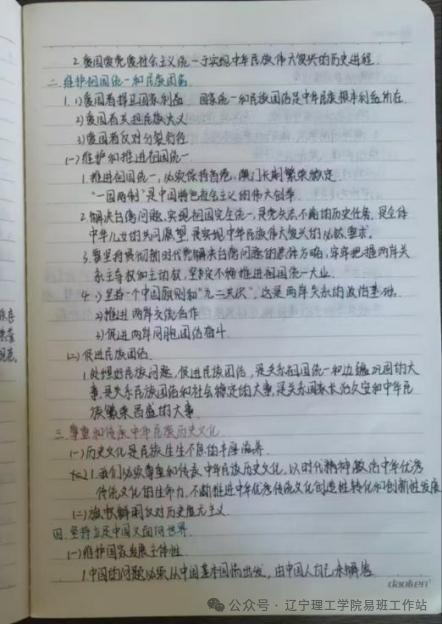 2.爱国爱党爱社会主义统一于实现中华民族伟大复兴的历史进程
二.维护祖国统一和民族团结
1.1)爱国者捍卫国家利益 国家统一和民族团结是中华民族根本利益所在
2)爱国者关担民族大义
3)爱国者反对分裂行径
(一)维护和推进祖国统一
1.推进祖国统一,必须保持香港,澳门长期繁荣稳定
"一国两制"是中国特色社会主义的伟大创举
2.解决台湾问题,实现祖国完全统一,是党矢志不渝的历史任务,是全体
中华儿女的共同愿望,是实现中华民族伟大复兴的必然要求。
3.要坚持贯彻新时代党解决台湾问题的总体方略,牢牢把握两岸关
系主导权和主动权,坚定不移推进祖国统一大业。
4.1)坚持一个中国原则和"九二共识",这是两岸关系的政治基础。
2)推进两岸交流合作
3)促进两岸同胞团结奋斗
(二)促进民族团结
1.处理好民族问题,促进民族团结,是关系祖国统一和边疆巩固的大
事,是关系民族团结和社会稳定的大事,是关系国家长治久安和中华民
族繁荣昌盛的大事。
三.尊重和传承中华民族历史文化
(一)历史文化是民族生生不息的丰厚滋养
1.我们必须尊重和传承中华民族历史文化,以时代精神激活中华优秀
传统文化的生命力,不断推进中华优秀传统文化创造性转化和创新性发展
(二)旗帜鲜明反对历史虚无主义
四.坚持立足中国又面向世界
(一)维护国家发展主体性
1.中国的问题必须从中国基本国情出发,由中国人自己来解答
公众号·辽宁理工学院易班工作站